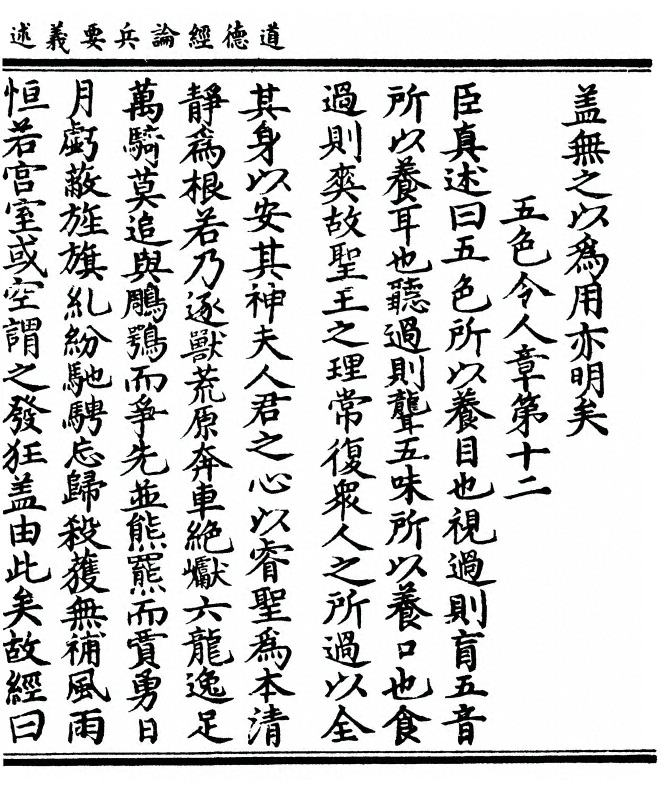 道德經論兵要義述
盖無之以爲用亦明矣
五色令人章第十二
臣真述曰五色所以養目也視過則盲五音
所以養耳也聽過則聾五味所以養口也食
過則爽故聖王之理常復衆人之所過以全
其身以安其神夫人君之心以睿聖爲本清
靜爲根若乃逐獸荒原奔車絶巘六龍逸足
萬騎莫追與鵰鶚而爭先並熊羆而賈勇日
月虧蔽旌旗糺紛馳騁忘歸殺獲無補風雨
恒若宫室或空謂之發狂盖由此矣故經曰